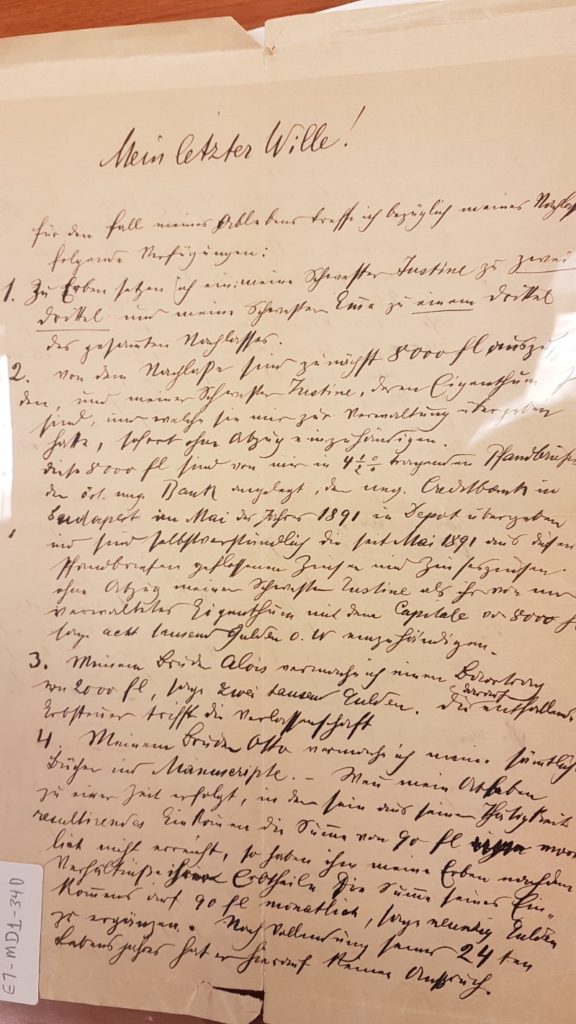 Mein letzter Wille!
für den Fall meines Ablebens treffe ich bezüglich meines Nachlaß
folgende Verfügungen:
1. Zu Erben setzen ich ein: meine Schwester Justine zu zwei
drittel und meine Schwester Emma zu einem drittel
des gesamten Nachlasses.
2. von dem Nachlaße sind zunächst 8000 fl auszu
den, und meiner Schwester Justine, deren Eigenthum
sind, und welche sie mir zur Verwaltung übergeben
hatte, sofort ohne Abzug einzuhändigen.
diese 8000 fl sind von mir in 4 1/2 % tragenden Pfandbriefen
der öst. ung. Bank angelegt, der ung. Creditbank in
Budapest im Mai des Jahres 1891 in Depot übergeben
und sind selbstverständlich die seit Mai 1891 aus diesen
Pfandbriefen geflossenen Zinsen und Zinseszinsen
ohne Abzug meiner Schwester Justine als ihr von mir
verwaltetes Eigenthum mit dem Capitale von 8000 f
sage acht tausend Gulden ö. W einzuhändigen.
3. Meinem Bruder Alois vermache ich einen Baarbetrag
von 2000 fl, sage zwei tausend Gulden. Die darauf entfallende
Erbsteuer trifft die Verlassenschaft
4. Meinem Bruder Otto vermache ich meine sämtlich
Bücher und Manuscripte. – Wenn mein Ableben
zu einer Zeit erfolgt, in der sein aus seiner Thätigkeit
resultirendes Einkommen die Summe von 90 fl mona
lich nicht erreicht, so haben ihm meine Erben nach dem
Verhältniße ihrer Erbtheile die Summe seines Ein-
kommens auf 90 fl monatlich, sage neunzig Gulden
zu ergänzen. Nach Vollendung seines 24 ten
Lebensjahres hat er hierauf keinen Anspruch.
E7-MD1-340